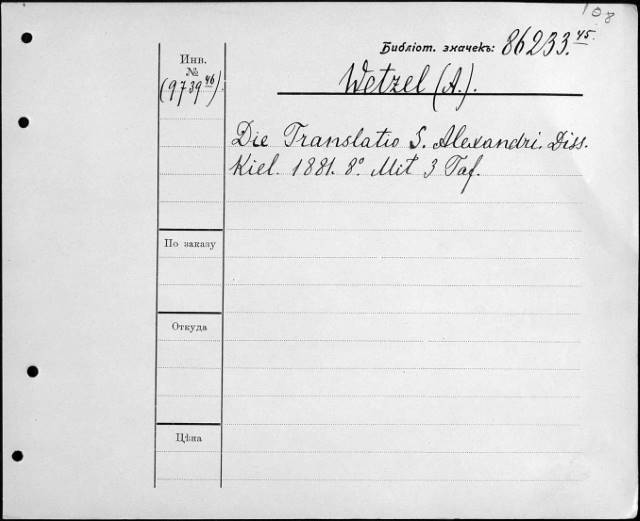 108
Инв.
№
(9739⁴⁶).
Библіот. значекъ: 86233.⁴⁵.
Wetzel (A.).
Die Translatio S. Alexandri. Diss.
Kiel. 1881. 8º. Mit 3 Taf.
По заказу
Откуда
Цѣна